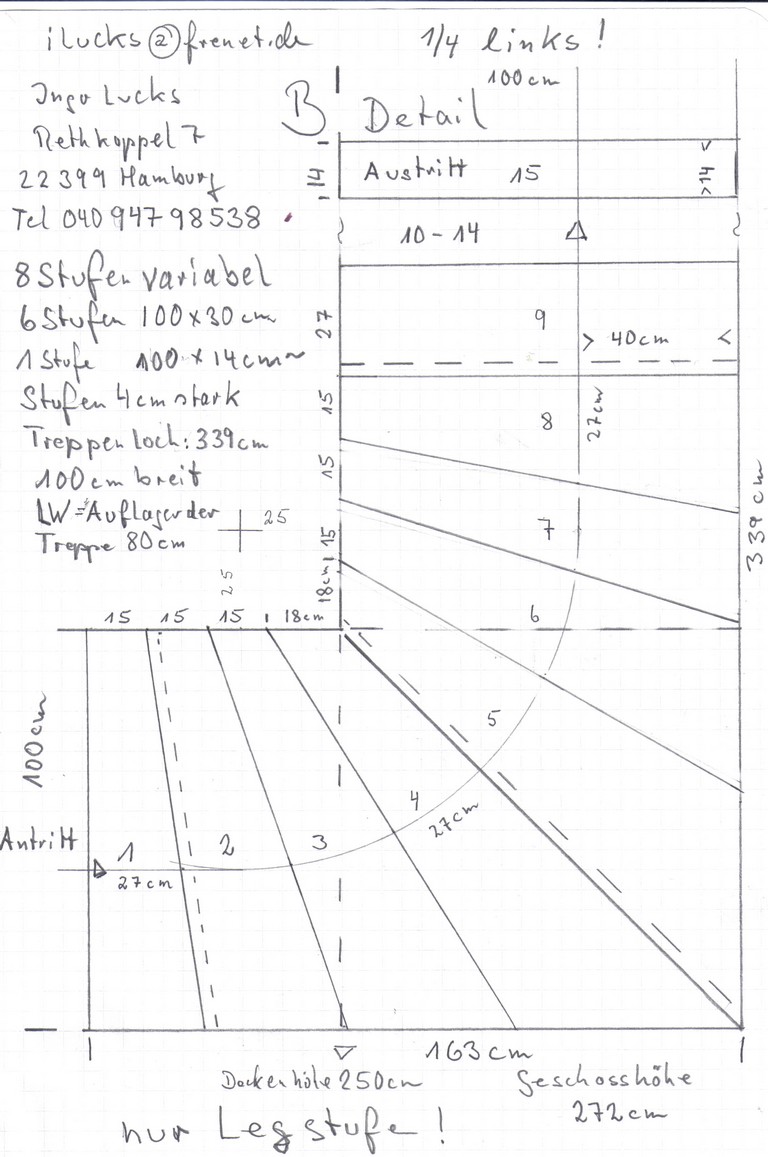 ilucks@frenet.de
1/4 links!
Ingo Lucks
Rethkoppel 7
22399 Hamburg
Tel 040 947 98538
8 Stufen variabel
6 Stufen 100 x 30 cm
1 Stufe 100 x 14 cm
Stufen 4 cm stark
Treppenloch: 339 cm
100 cm breit
LW = Auflager der
Treppe 80 cm
25
25
B Detail
100 cm
14
Austritt 15
>14
10 - 14
27
9
> 40 cm <
15
8
27 cm
15
7
15
18 cm
6
339 cm
15 15 15 18 cm
5
100 cm
4
27 cm
Antritt
1
2
3
27 cm
163 cm
Deckenhöhe 250 cm
Geschosshöhe
272 cm
nur Legstufe!